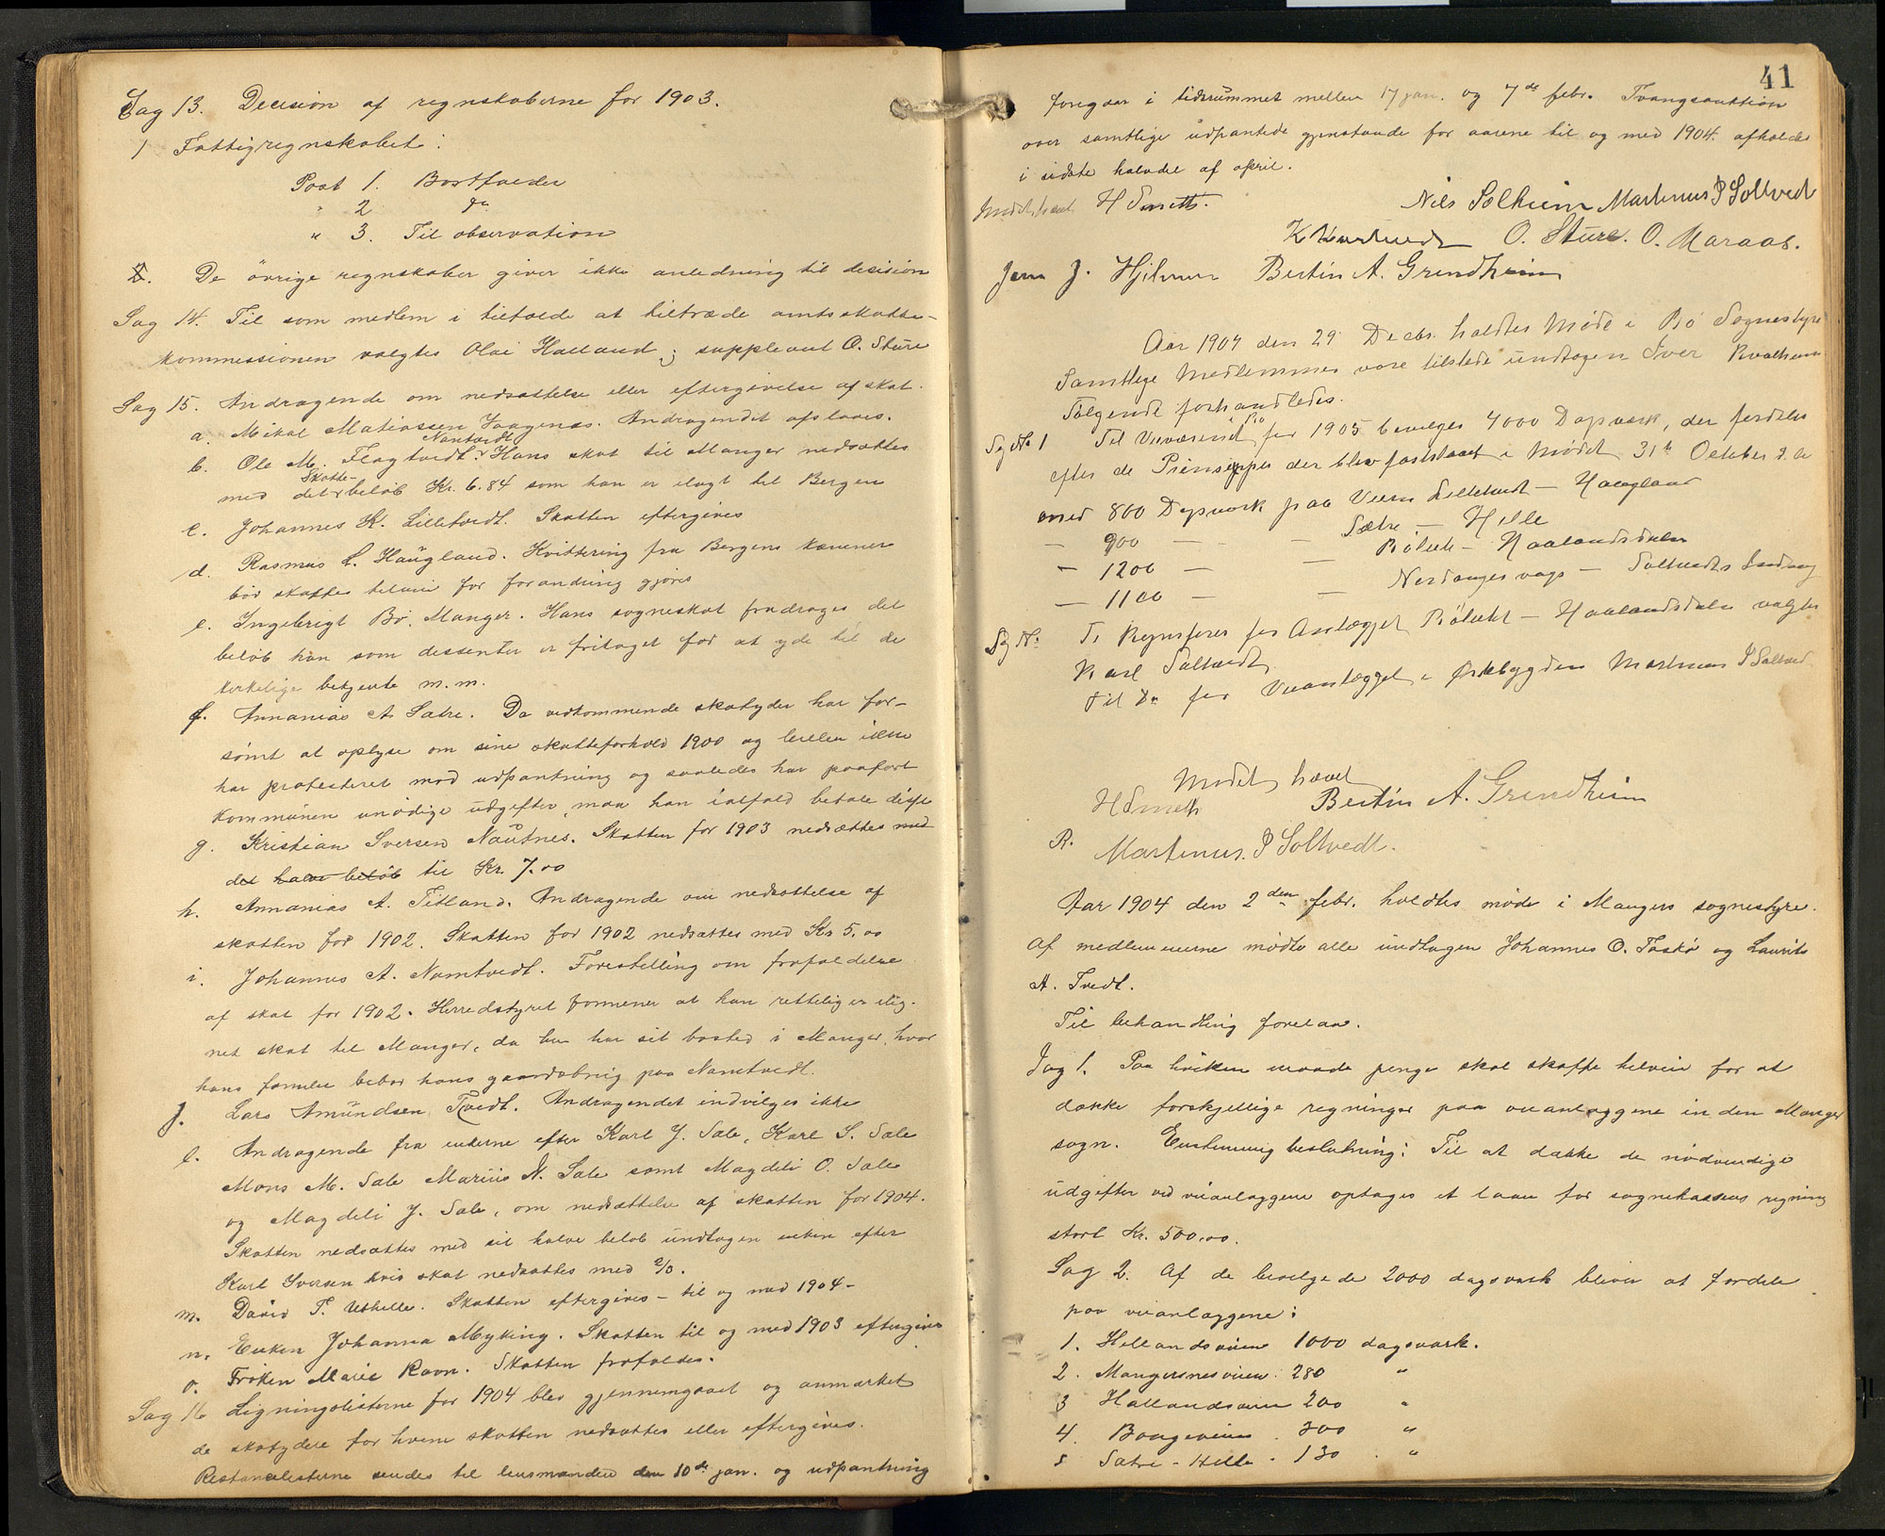 Sag 13. Decision af regnskaberne for 1903.
1 Fattigregnskabet:
Post 1. Bortfalder
" 2 do
" 3. Til observation
2. De övrige regnskaber giver ikke anledning til decision
Sag 14. Til som medlem i tilfælde at tiltræde amtsskatte-
kommissionen valgtes Olai Halland; suppleant O. Sture
Sag 15. Andragende om nedsættelse eller eftergivelse af skat.
a. Mikal Matiassen Andragendet afslaaes.
b. Ole M. Namtvedt. Hans skat til Manger nedsættes
med det skatte- beløb Kr. 6.84 som han er ilagt til Bergen
c. Johannes K. Lilletvedt. Skatten eftergives
d. Rasmus L. Haugland. Kvittering fra Bergens kæmner
bör skaffes tilveie før forandring gjöres
e. Ingebrigt Bö. Manger. Hans sogneskat fradrages det
beløb han som dissenter er fritaget for at yde til de
kirkelige m.m.
f. Annanias A Sætre. Da vedkommende skatyder har for-
sömt at oplyse om sine skatteforhold 1900 og heller ikke
har protesteret mod udpantning og saaledes har paaført
kommunen unödige udgifter, maa han ialfald betale disse
g. Kristian Iversen Nautnes. Skatten for 1903 nedsættes med
det halve beløb til Kr. 7.00
h. Annanias A. Titland. Andragende om nedsættelse af
skatten for 1902. Skatten for 1902 nedsættes med Kr 5.00
i. Johannes A. Namtvedt. Forestilling om frafaldelse
af skat for 1902. Herredstyret formener at han rettelig er ilig-
net skat til Manger, da han har sit bosted i Manger, hvor
hans familie bebor hans gaardsbrug paa Namtvedt.
j. Lars Amundsen Tvedt. Andragendet indvilges ikke
l. Andragende fra enkerne efter Karl J. Sale, Karl I. Sale
Mons M. Sale Marius N. Sale samt Magdeli O. Sale
og Magdeli J. Sale, om nedsættelse af skatten for 1904.
Skatten nedsættes med sit halve beløb undtagen enken efter
Karl Iversen hvis skat nedsættes med 2/3.
m. David T. Uthelle. Skatten eftergives - til og med 1904 -
n. Enken Johanna Myking. Skatten til og med 1903 eftergives
o. Fröken Marie Ravn. Skatten frafaldes.
Sag 16 Ligningslisterne for 1904 blev gjennemgaaet og anmærket
de skatydere for hvem skatten nedsættes eller eftergives.
Restancelisterne sendes til lensmanden den 10de jan. og udpantning
41
foregaar i tidsrummet mellem 17 jan. og 7de febr. Tvangsauktion
over samtlige udpantede gjenstande for aarene til og med 1904. afholdes
i sidste halvdel af april.
Mödet hævet H Smith. Nils Sælheim Martinus P Soltvedt
O. Sture. O. Maraas.
Jens J. Hjelmen Bertin A. Grendheim
Aar 1904 den 29 Decbr. holdtes Möde i Bö Sognestyre
Samtlige Medlemmer vare tilstede undtagen Iver Kvalheim
Fölgende forhandledes.
Sag No 1 Til Veivæsenet i Bö for 1905 bevilges 4000 Dagsværk, der fordeles
efter de Prinsipper der blev fastslaaet i Mödet 31te October d. a
med 800 Dagsværk paa Veien Lilletvedt - Haugland
— 900 — — Sætre — Hille
— 1200 — — Böleth - Haalandsdalen
— 1100 — — Nordangervaag - Soltvedts
Sag No Ti Regnsförer for Anlægget Böletht - Haalandsdalen valgtes
Karl Saltvedt
til Do for Veianlægget i Martinus P Soltvedt
Mödet hævet
H Smith Bertin A. Grendheim
R. Martinus P Soltvedt.
Aar 1904 den 2den febr. holdtes möde i Mangers sognestyre.
Af medlemmerne mödte alle undtagen Johannes O. Toskö og Laurits
A. Tvedt.
Til behandling forelaa.
Sag 1. Paa hvilken maade penge skal skaffes tilveie for at
dække forskjellige regninger paa veianlæggene inden Manger
sogn. Enstemmig beslutning: Til at dække de nödvendige
udgifter ved veianlæggene optages et laan for sognekassens regning
stort Kr. 500,00.
Sag 2. Af de bevilgede 2000 dagsværk bliver at fordele
paa veianlæggene:
1. Hellandsveien 1000 dagsværk.
2. Mangersnesveien: 280 "
3 Hallandsveien 200 "
4. Bougeveien . 300 "
5 Sætre - Hille . 130 . "